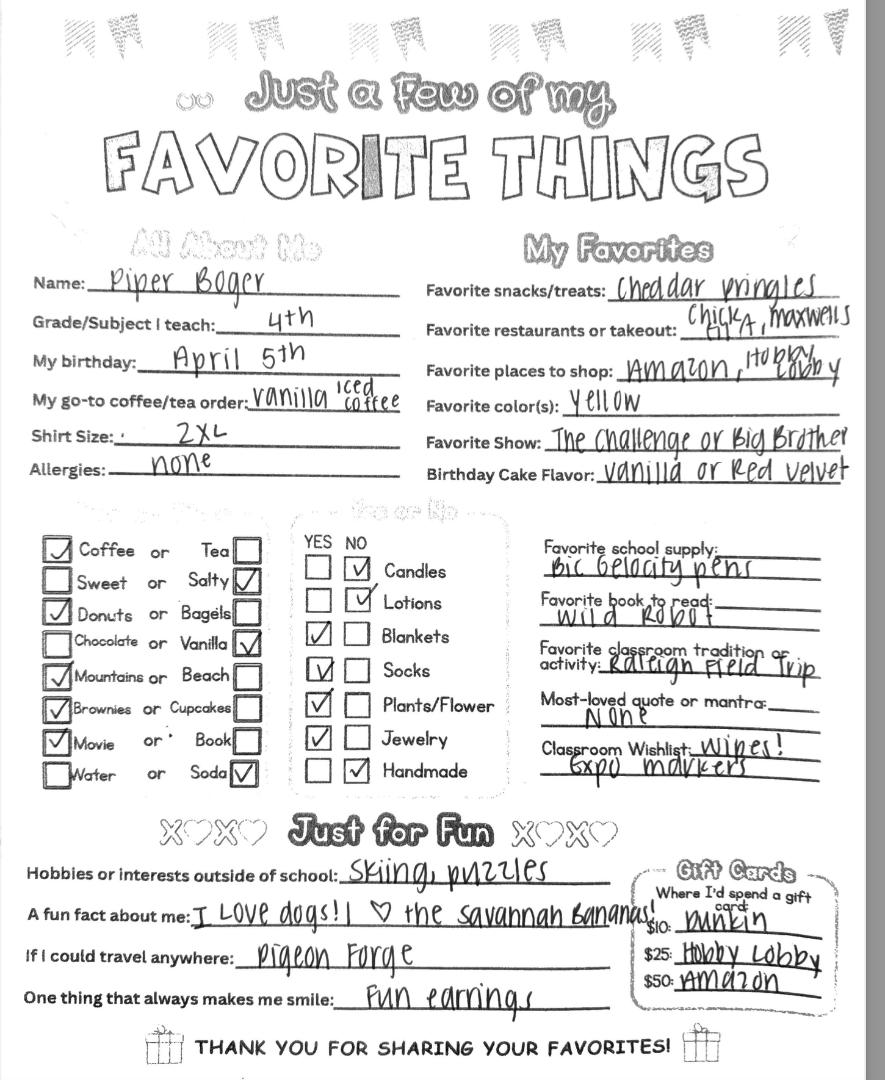 Just a Few of my
FAVORITE THINGS
All About Me
Name: Piper Boger
Grade/Subject I teach: 4th
My birthday: April 5th
My go-to coffee/tea order: vanilla iced coffee
Shirt Size: 2XL
Allergies: none
My Favorites
Favorite snacks/treats: Cheddar pringles
Favorite restaurants or takeout: Chick fil A, maxwells
Favorite places to shop: Amazon, Hobby Lobby
Favorite color(s): Yellow
Favorite Show: The Challenge or Big Brother
Birthday Cake Flavor: vanilla or Red velvet
Coffee or Tea
Sweet or Salty
Donuts or Bagels
Chocolate or Vanilla
Mountains or Beach
Brownies or Cupcakes
Movie or Book
Water or Soda
Yes or No
YES NO
Candles
Lotions
Blankets
Socks
Plants/Flower
Jewelry
Handmade
Favorite school supply:
Bic Gelocity pens
Favorite book to read:
Wild Robot
Favorite classroom tradition or
activity: Raleigh Field Trip
Most-loved quote or mantra:
None
Classroom Wishlist: Wipes!
Expo markers
XOXO Just for Fun XOXO
Hobbies or interests outside of school: Skiing, puzzles
A fun fact about me: I Love dogs!! ♡ the Savannah Bananas!
If I could travel anywhere: Pigeon Forge
One thing that always makes me smile: Fun earrings
Gift Cards
Where I'd spend a gift
card:
$10: Dunkin
$25: Hobby Lobby
$50: Amazon
THANK YOU FOR SHARING YOUR FAVORITES!